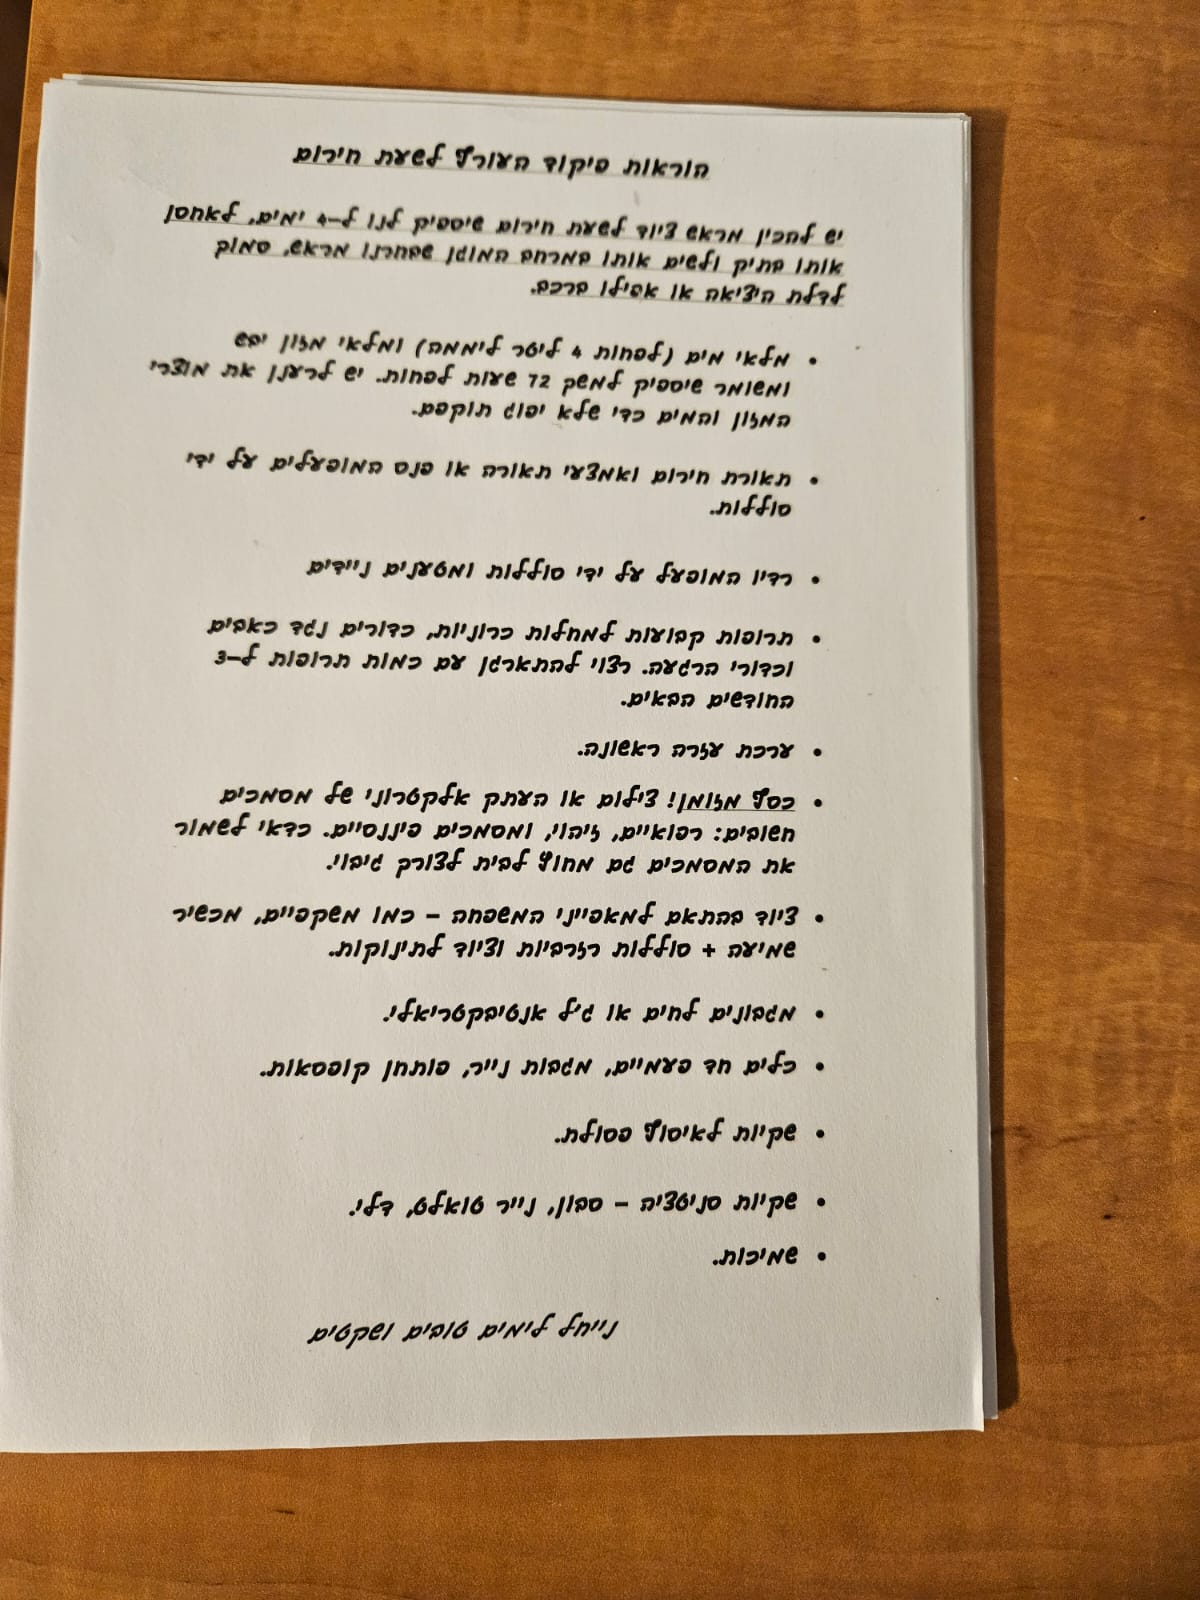 הוראות פיקוד העורף לשעת חירום
יש להכין מראש ציוד לשעת חירום שיספיק לנו ל-4 ימים, לאחסן
אותו בתיק ולשים אותו במרחב המוגן שבחרנו מראש, סמוך
לדלת היציאה או אפילו ברכב.
• מלאי מים (לפחות 4 ליטר ליממה) ומלאי מזון יבש
ומשומר שיספיק למשק 72 שעות לפחות. יש לרענן את מוצרי
המזון והמים כדי שלא יפוג תוקפם.
• תאורת חירום ואמצעי תאורה או פנס המופעלים על ידי
סוללות.
• רדיו המופעל על ידי סוללות ומטענים ניידים
• תרופות קבועות למחלות כרוניות, כדורים נגד כאבים
וכדורי הרגעה. רצוי להתארגן עם כמות תרופות ל-3
החודשים הבאים.
• ערכת עזרה ראשונה.
• כסף מזומן! צילום או העתק אלקטרוני של מסמכים
חשובים: רפואיים, זיהוי, ומסמכים פיננסיים. כדאי לשמור
את המסמכים גם מחוץ לבית לצורק גיבוי.
• ציוד בהתאם למאפייני המשפחה – כמו משקפיים, מכשיר
שמיעה + סוללות רזרביות וציוד לתינוקות.
• מגבונים לחים או ג'ל אנטיבקטריאלי.
• כלים חד פעמיים, מגבות נייר, פותחן קופסאות.
• שקיות לאיסוף פסולת.
• שקיות סניטציה – סבון, נייר טואלט, דלי.
• שמיכות.
נייחל לימים טובים ושקטים